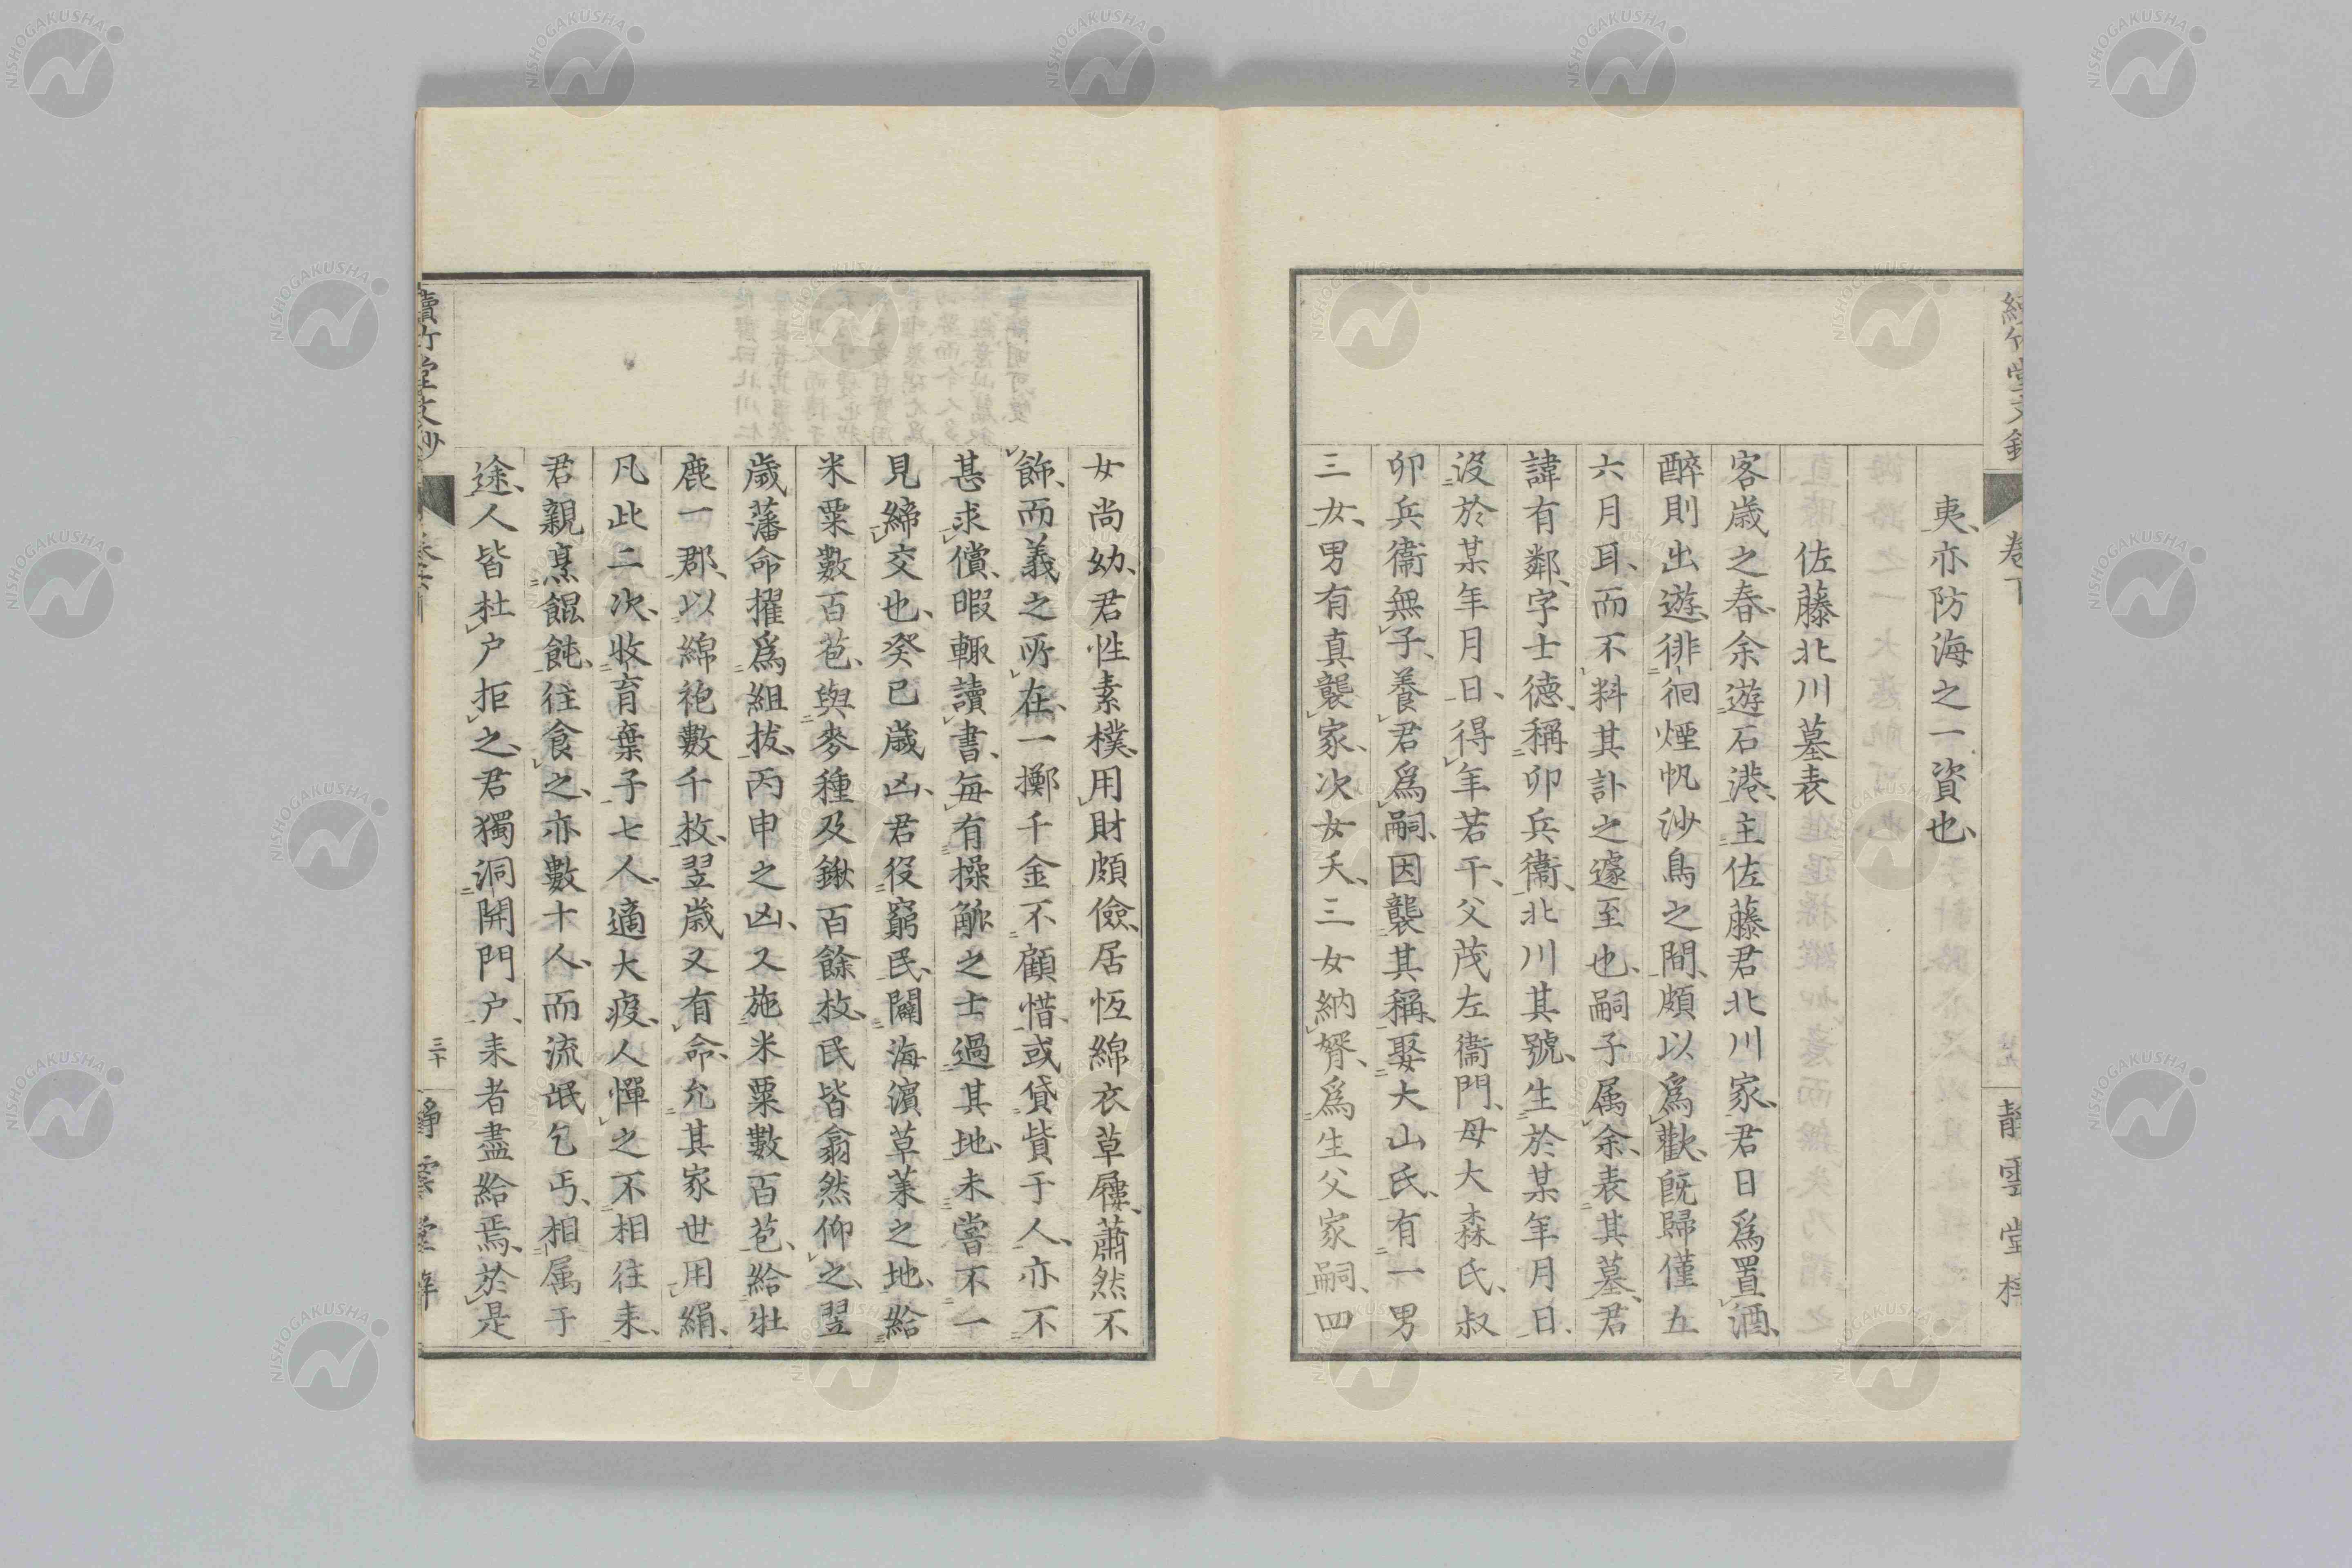 夷、亦防海之一資也、
佐藤北川墓表
客歳之春、余遊石港、主佐藤君北川家、君日爲置酒、
醉則出遊、徘徊煙帆沙鳥之間、頗以爲歡、既歸僅五
六月耳、而不料其訃之遽至也、嗣子属余、表其墓、君
諱有鄰、字士德、稱卯兵衞、北川其號、生於某年月日、
沒於某年月日、得年若干、父茂左衞門、母大森氏、叔
卯兵衞無子、養君爲嗣、因襲其稱、娶大山氏、有一男
三女、男有真襲家、次女夭、三女納婿、爲生父家嗣、四
女尚幼、君性素樸、用財頗儉、居恆綿衣草屨、蕭然不
飾、而義之所在、一擲千金不顧惜、或貸貲于人、亦不
甚求償、暇輒讀書、每有操觚之士過其地、未嘗不一
見締交也、癸巳歳凶、君役窮民、闢海濱草萊之地、給
米粟數百苞、與麥種及鍬百餘枚、民皆翕然仰之、翌
歳藩命擢爲組抜、丙申之凶、又施米粟數百苞、給牡
鹿一郡、以綿袍數千枚、翌歳又有命、允其家世用絹、
凡此二次、收育棄子七人、適大疫、人憚之不相往来、
君親烹餛飩、往食之、亦數十人、而流氓乞丐、相属于
途、人皆杜户拒之、君獨洞開門户、来者盡給焉、於是
三十
NISHOGAKUSHA